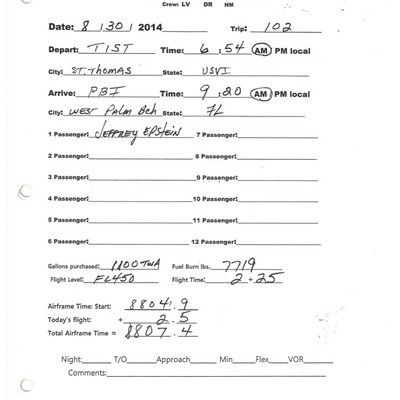 Crew: LV DR NM
Date: 8 / 30 / 2014 Trip: 102
Depart: TIST Time: 6 : 54 AM PM local
City: ST. THOMAS State: USVI
Arrive: PBI Time: 9 : 20 AM PM local
City: WEST PALM BCH State: FL
1 Passenger: JEFFREY EPSTEIN 7 Passenger:
2 Passenger: 8 Passenger:
3 Passenger: 9 Passenger:
4 Passenger: 10 Passenger:
5 Passenger: 11 Passenger:
6 Passenger: 12 Passenger:
Gallons purchased: 1100 TWA Fuel Burn lbs. 7719
Flight Level: FL450 Flight Time: 2 + 25
Airframe Time: Start: 8804.9
Today's flight: + 2.5
Total Airframe Time = 8807.4
Night: T/O Approach Min Flex VOR
Comments: